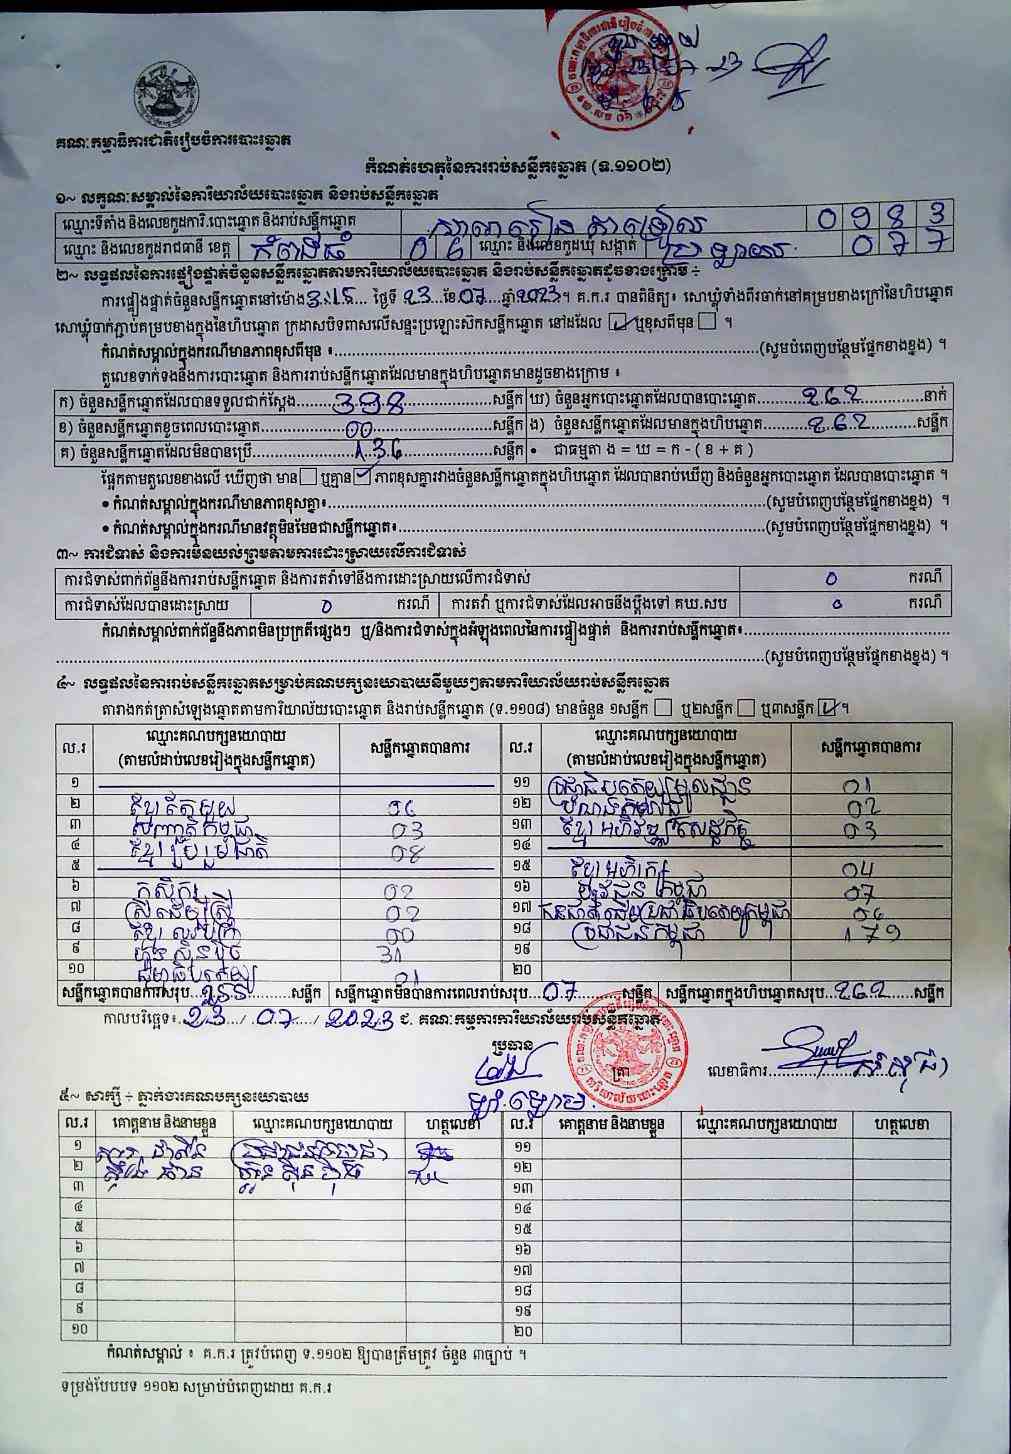 គណៈកម្មាធិការជាតិរៀបចំការបោះឆ្នោត
កំណត់ហេតុនៃការរាប់សន្លឹកឆ្នោត (ទ.១១០២)
១~ លក្ខណៈសម្គាល់នៃការិយាល័យបោះឆ្នោត និងរាប់សន្លឹកឆ្នោត
ឈ្មោះទីតាំង និងលេខកូដការិ.បោះឆ្នោត និងរាប់សន្លឹកឆ្នោត
ឈ្មោះ និងលេខកូដរាជធានី ខេត្ត កំពង់ធំ 0 6 ឈ្មោះ និងលេខកូដឃុំ សង្កាត់ ប្រឡាយ 0 7 7
២~ លទ្ធផលនៃការផ្ទៀងផ្ទាត់ចំនួនសន្លឹកឆ្នោតតាមការិយាល័យបោះឆ្នោត និងរាប់សន្លឹកឆ្នោតដូចខាងក្រោម ÷
ការផ្ទៀងផ្ទាត់ចំនួនសន្លឹកឆ្នោតនៅម៉ោង 3:15 ថ្ងៃទី 23 ខែ 07 ឆ្នាំ 2023។ គ.ក.រ បានពិនិត្យ៖ សោឃ្លុំទាំងពីរចាក់នៅគម្របខាងក្រៅនៃហិបឆ្នោត
សោឃ្លុំចាក់ភ្ជាប់គម្របខាងក្នុងនៃហិបឆ្នោត ក្រដាសបិទពាសលើសន្ទះប្រឡោះស៊កសន្លឹកឆ្នោត នៅដដែល ☑ ឬខុសពីមុន ☐ ។
កំណត់សម្គាល់ក្នុងករណីមានភាពខុសពីមុន ៖..........(សូមបំពេញបន្ថែមផ្នែកខាងខ្នង) ។
តួលេខទាក់ទងនឹងការបោះឆ្នោត និងការរាប់សន្លឹកឆ្នោតដែលមានក្នុងហិបឆ្នោតមានដូចខាងក្រោម ៖
ក) ចំនួនសន្លឹកឆ្នោតដែលបានទទួលជាក់ស្តែង 398 សន្លឹក ឃ) ចំនួនអ្នកបោះឆ្នោតដែលបានបោះឆ្នោត 262 នាក់
ខ) ចំនួនសន្លឹកឆ្នោតខូចពេលបោះឆ្នោត 00 សន្លឹក ង) ចំនួនសន្លឹកឆ្នោតដែលមានក្នុងហិបឆ្នោត 262 សន្លឹក
គ) ចំនួនសន្លឹកឆ្នោតដែលមិនបានប្រើ 136 សន្លឹក • ជាធម្មតា ង = ឃ = ក - ( ខ + គ )
ផ្អែកតាមតួលេខខាងលើ ឃើញថា មាន ☐ ឬគ្មាន ☑ ភាពខុសគ្នារវាងចំនួនសន្លឹកឆ្នោតក្នុងហិបឆ្នោត ដែលបានរាប់ឃើញ និងចំនួនអ្នកបោះឆ្នោត ដែលបានបោះឆ្នោត ។
• កំណត់សម្គាល់ក្នុងករណីមានភាពខុសគ្នា៖..........(សូមបំពេញបន្ថែមផ្នែកខាងខ្នង) ។
• កំណត់សម្គាល់ក្នុងករណីមានវត្ថុមិនមែនជាសន្លឹកឆ្នោត៖..........(សូមបំពេញបន្ថែមផ្នែកខាងខ្នង) ។
៣~ ការជំទាស់ និងការមិនយល់ព្រមតាមការដោះស្រាយលើការជំទាស់
ការជំទាស់ពាក់ព័ន្ធនឹងការរាប់សន្លឹកឆ្នោត និងការតវ៉ាទៅនឹងការដោះស្រាយលើការជំទាស់ 0 ករណី
ការជំទាស់ដែលបានដោះស្រាយ 0 ករណី ការតវ៉ា ឬការជំទាស់ដែលអាចនឹងប្តឹងទៅ គឃ.សប 0 ករណី
កំណត់សម្គាល់ពាក់ព័ន្ធនឹងភាពមិនប្រក្រតីផ្សេងៗ ឬ/និងការជំទាស់ក្នុងអំឡុងពេលនៃការផ្ទៀងផ្ទាត់ និងការរាប់សន្លឹកឆ្នោត៖..........
..........(សូមបំពេញបន្ថែមផ្នែកខាងខ្នង) ។
៤~ លទ្ធផលនៃការរាប់សន្លឹកឆ្នោតសម្រាប់គណបក្សនយោបាយនីមួយៗតាមការិយាល័យរាប់សន្លឹកឆ្នោត
តារាងកត់ត្រាសំឡេងឆ្នោតតាមការិយាល័យបោះឆ្នោត និងរាប់សន្លឹកឆ្នោត (ទ.១១០៨) មានចំនួន ១សន្លឹក ☐ ឬ២សន្លឹក ☐ ឬ៣សន្លឹក ☑ ។
ល.រ ឈ្មោះគណបក្សនយោបាយ (តាមលំដាប់លេខរៀងក្នុងសន្លឹកឆ្នោត) សន្លឹកឆ្នោតបានការ ល.រ ឈ្មោះគណបក្សនយោបាយ (តាមលំដាប់លេខរៀងក្នុងសន្លឹកឆ្នោត) សន្លឹកឆ្នោតបានការ
១ ១១ ប្រជាធិបតេយ្យមូលដ្ឋាន 01
២ ខ្មែរតែមួយ ១២ 02
៣ សញ្ជាតិកម្ពុជា 03 ១៣ ខ្មែរអភិវឌ្ឍន៍សេដ្ឋកិច្ច 03
៤ ខ្មែររួបរួមជាតិ 08 ១៤
៥ ១៥ ខ្មែរអភិរក្ស 04
៦ កសិករ 02 ១៦ យុវជនកម្ពុជា 07
៧ ស្រ្តីដើម្បីស្រ្តី 02 ១៧ ជនជាតិដើមប្រជាធិបតេយ្យកម្ពុជា
៨ 00 ១៨ ប្រជាជនកម្ពុជា 179
៩ ហ៊្វុនស៊ិនប៉ិច 31 ១៩
១០ ធម្មាធិបតេយ្យ 01 ២០
សន្លឹកឆ្នោតបានការសរុប 255 សន្លឹក សន្លឹកឆ្នោតមិនបានការពេលរាប់សរុប 07 សន្លឹក សន្លឹកឆ្នោតក្នុងហិបឆ្នោតសរុប 262 សន្លឹក
កាលបរិច្ឆេទ៖ 23 / 07 / 2023 ជ. គណៈកម្មការការិយាល័យរាប់សន្លឹកឆ្នោត
ប្រធាន
ត្រា លេខាធិការ
៥~ សាក្សី ÷ ភ្នាក់ងារគណបក្សនយោបាយ
ល.រ គោត្តនាម និងនាមខ្លួន ឈ្មោះគណបក្សនយោបាយ ហត្ថលេខា ល.រ គោត្តនាម និងនាមខ្លួន ឈ្មោះគណបក្សនយោបាយ ហត្ថលេខា
១ ប្រជាជនកម្ពុជា ១១
២ ហ៊្វុនស៊ិនប៉ិច ១២
៣ ១៣
៤ ១៤
៥ ១៥
៦ ១៦
៧ ១៧
៨ ១៨
៩ ១៩
១០ ២០
កំណត់សម្គាល់ ៖ គ.ក.រ ត្រូវបំពេញ ទ.១១០២ ឱ្យបានត្រឹមត្រូវ ចំនួន ៣ច្បាប់ ។
ទម្រង់បែបបទ ១១០២ សម្រាប់បំពេញដោយ គ.ក.រ